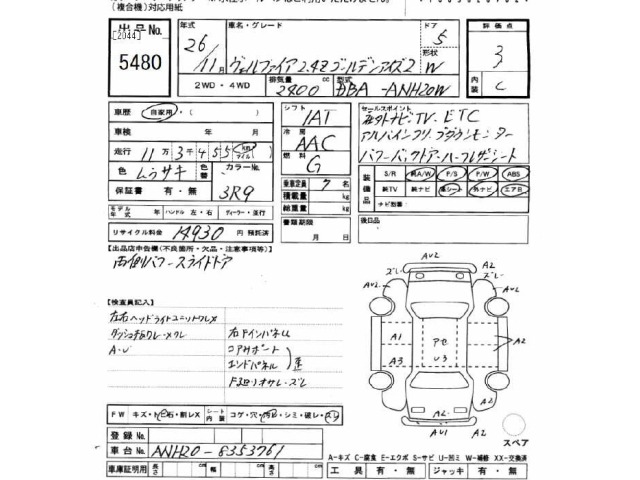 (複合機)対応用紙
出品No.
[2044]
5480
年式
26
11月
車名・グレード
ヴェルファイア 2.4Z ゴールデンアイズ2
ドア
5
形状
W
評価点
3
内装
C
2WD・4WD
排気量
2400 cc
型式
DBA-ANH20W
車歴
自家用・( )
車検 年 月
走行 11万3千455 km マイル
色 ムラサキ
色替
カラーNo.
3R9
保証書 有・無
モデル年式 年 ハンドル 左・右 ディーラー・並行
リサイクル料金 14930 円 預託済
シフト
IAT
冷房
AAC
燃料
G
乗車定員 7 名
積載量 kg
総重量 kg
書類期限
月 日
セールスポイント
社外ナビ TV、ETC
アルパインフリップダウンモニター
パワーバックドアー ハーフレザーシート
装備品
S/R 純A/W P/S P/W ABS
純TV 純ナビ 革シート 外ナビ エアB
ナビ脱着( )
後日品
【出品店申告欄(不良箇所・欠品・注意事項等)】
両側パワースライドドア
【検査員記入】
左右ヘッドライトユニットワレX
A・U
右Fインパネル
コアサポート
エンドパネル
歪
AU2
A2
ズレ
ズレ
AU2
A1
A3
アセ
U3
A2
A2
AU1
A2
スペア
FW キズ・ト・石・割レX シート内装 コゲ・穴・汚レ・シミ・破レ・スリ
登録No.
車台No. ANH20-8353761
車庫証明用 長さ cm 幅 cm 高さ cm
A-キズ C-腐食 E-エクボ S-サビ U-凹ミ W-補修 XX-交換済
工具 有・無 ジャッキ 有・無